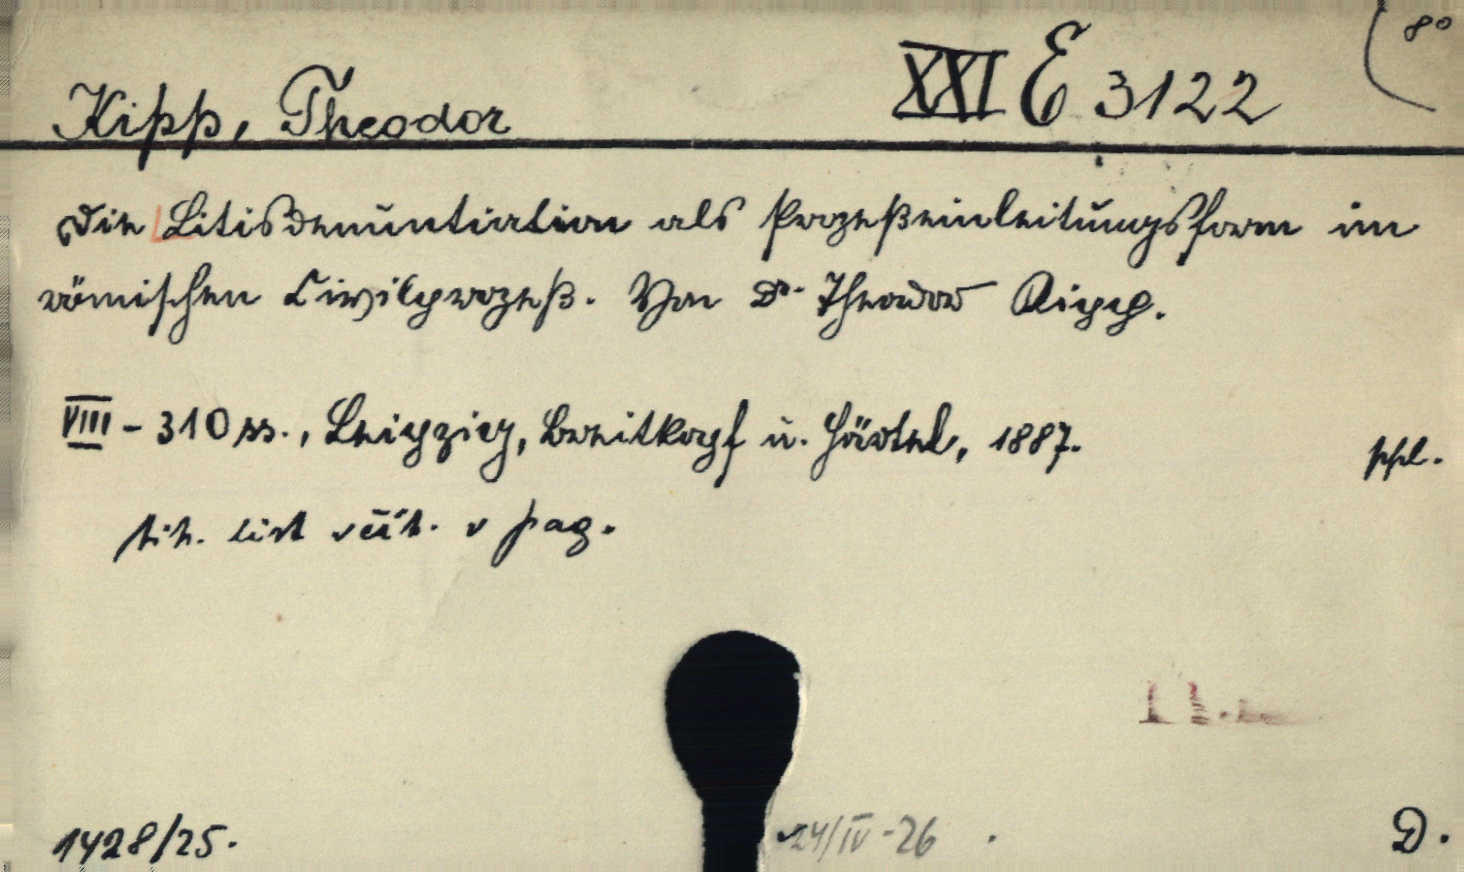 XXI E 3122 8°
Kipp, Theodor
Die Litisdenuntiation als Prozeßeinleitungsform im
römischen Civilprozeß. Von Dr. Theodor Kipp.
VIII - 310 ss., Leipzig, Breitkopf u. Härtel, 1887.
ppl.
tit. list včít. v pag.
1428/25. 24/IV-26 D.